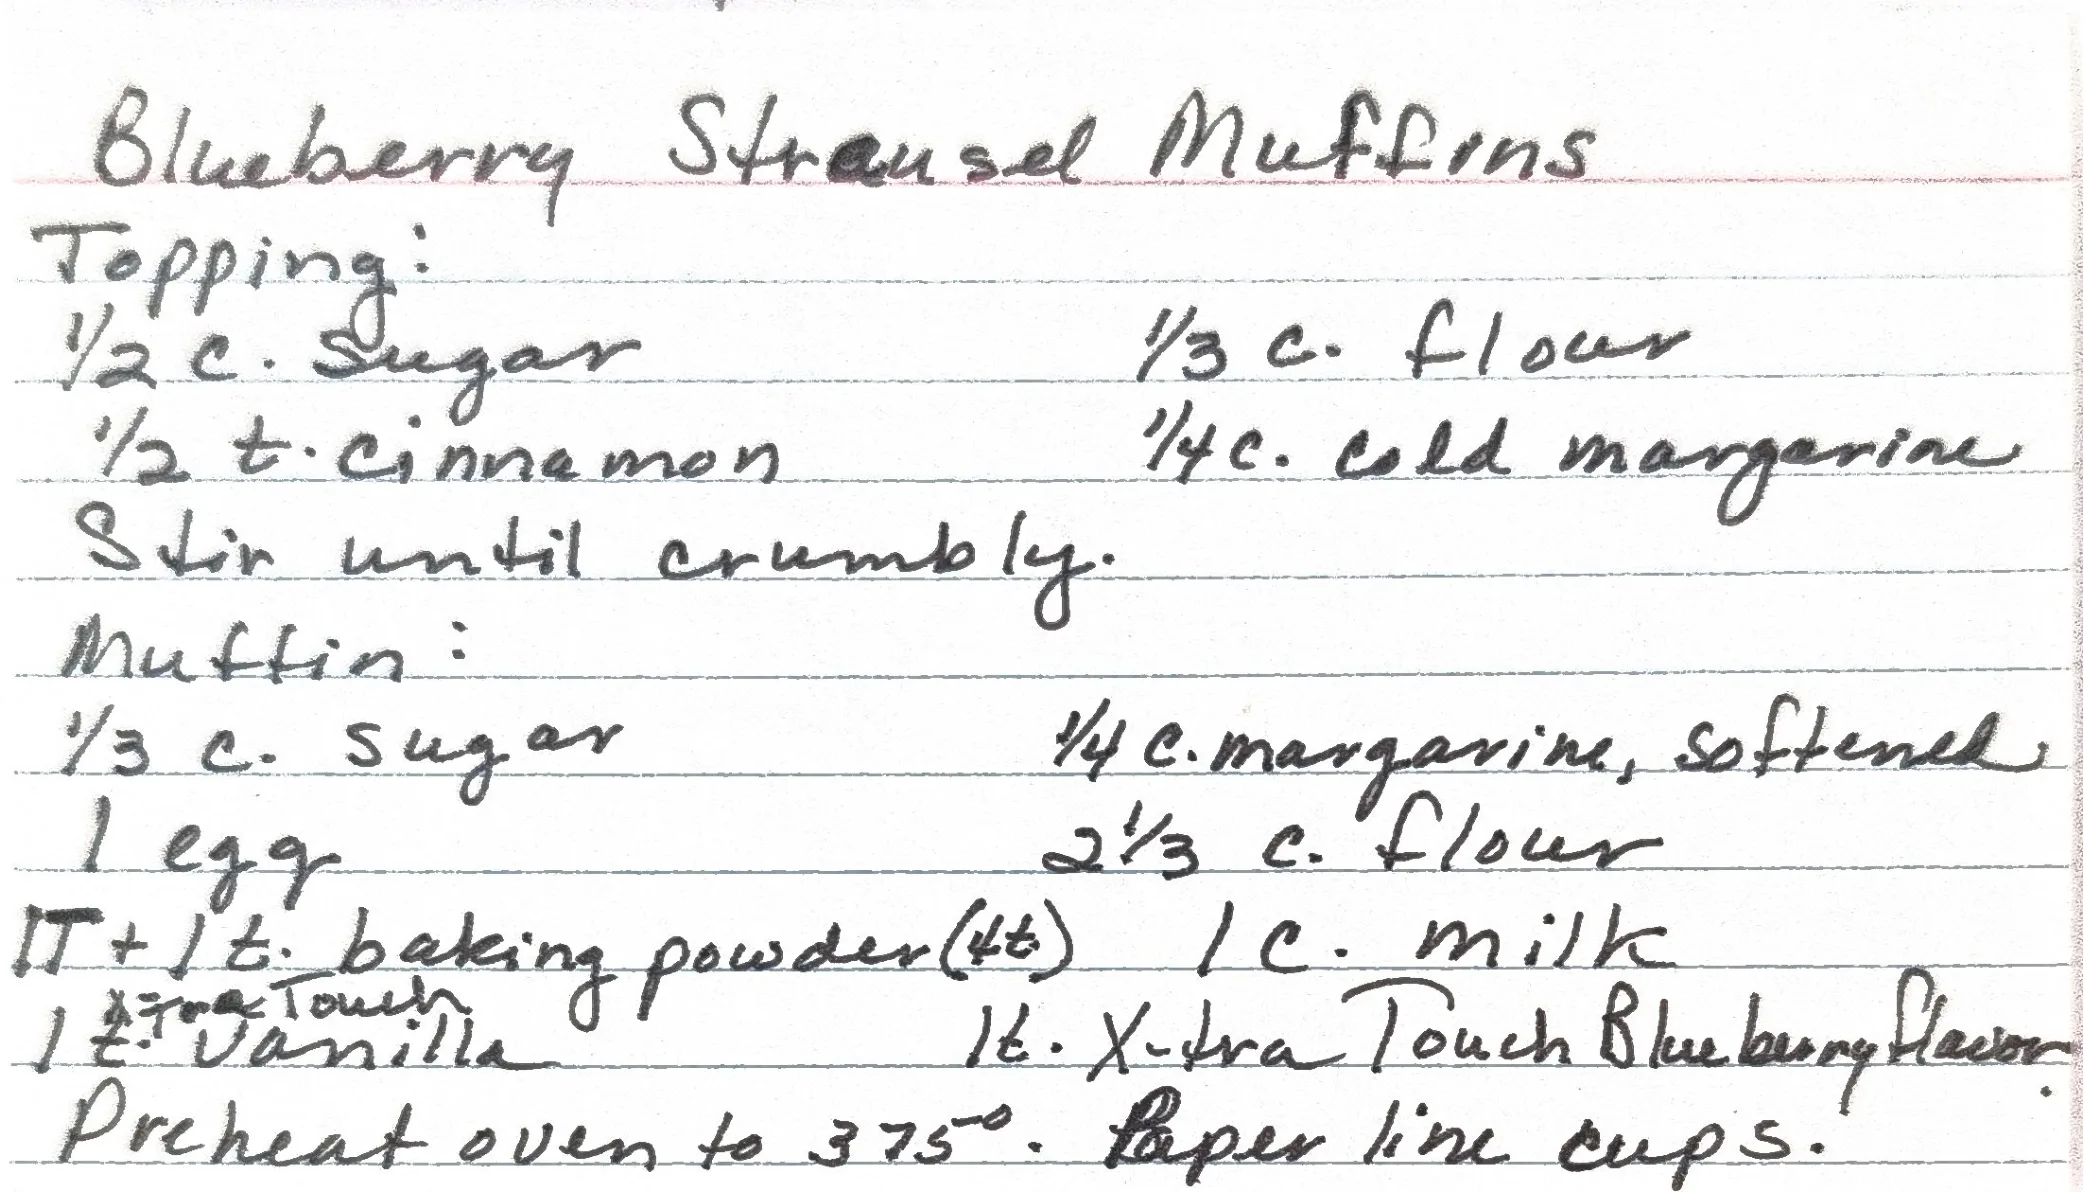 Blueberry Strausel Muffins
Topping:
1/2 c. sugar 1/3 c. flour
1/2 t. cinnamon 1/4 c. cold margarine
Stir until crumbly.
Muffin:
1/3 c. sugar 1/4 c. margarine, softened
1 egg 2 1/3 c. flour
1T + 1 t. baking powder (4t.) 1 c. milk
X-Tra Touch
1 t. Vanilla 1t. X-tra Touch Blueberry flavor.
Preheat oven to 375°. Paper line cups.